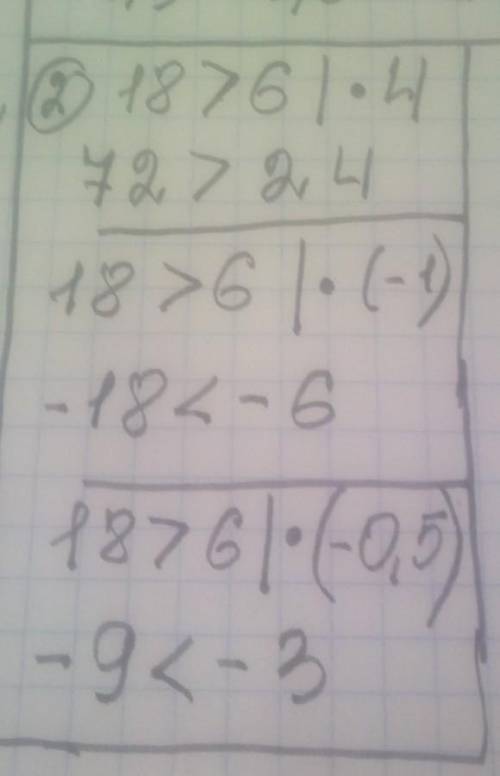 2) 18 > 6 | · 4
72 > 24
18 > 6 | · (-1)
-18 < -6
18 > 6 | · (-0,5)
-9 < -3